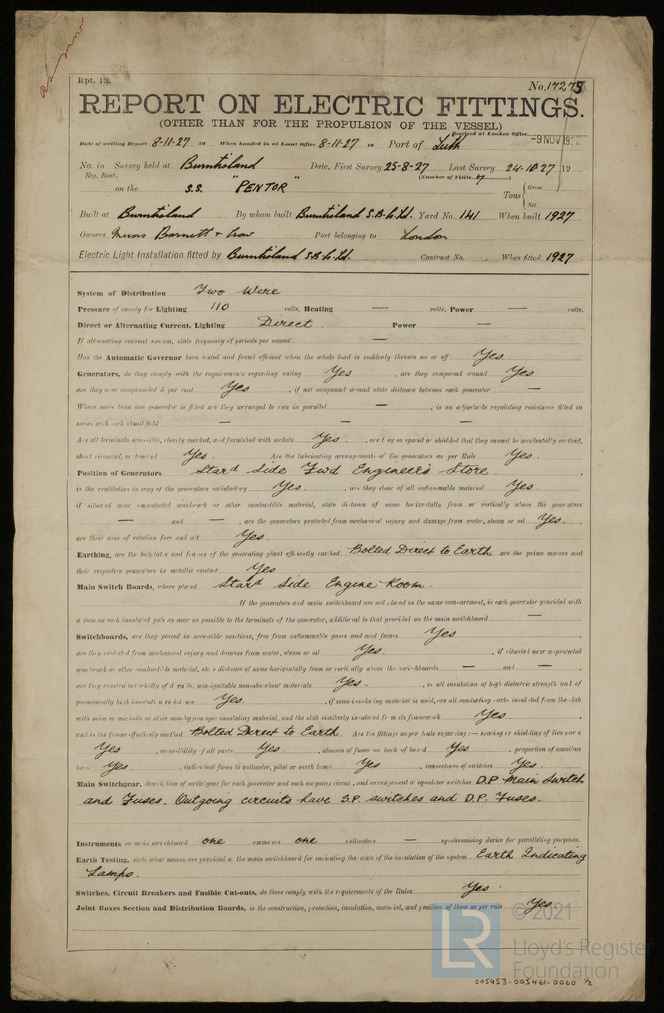 Rpt. 13.
No. 17273
REPORT ON ELECTRIC FITTINGS.
(OTHER THAN FOR THE PROPULSION OF THE VESSEL)
Received at London Office
-9 NOV 1927
Date of writing Report 8-11-27 19 When handed in at Local Office 8-11-27 19 Port of Leith
No. in Survey held at Burntisland Date, First Survey 25-8-27 Last Survey 24-10-27 19
Reg. Book. (Number of Visits 7)
on the S.S. "PENTOR" Tons { Gross
Net
Built at Burntisland By whom built Burntisland S.B. Co. Ld. Yard No. 141 When built 1927
Owners Messrs Barnett & Crow Port belonging to London
Electric Light Installation fitted by Burntisland S.B. Co. Ld. Contract No. When fitted 1927
System of Distribution Two Wire
Pressure of supply for Lighting 110 volts, Heating — volts, Power — volts.
Direct or Alternating Current, Lighting Direct Power —
If alternating current system, state frequency of periods per second —
Has the Automatic Governor been tested and found efficient when the whole load is suddenly thrown on or off Yes
Generators, do they comply with the requirements regarding rating Yes, are they compound wound Yes
are they over compounded 5 per cent. Yes, if not compound wound state distance between each generator —
Where more than one generator is fitted are they arranged to run in parallel —, is an adjustable regulating resistance fitted in
series with each shunt field — — —
Are all terminals accessible, clearly marked, and furnished with sockets Yes, are they so spaced or shielded that they cannot be accidentally earthed,
short circuited, or touched Yes. Are the lubricating arrangements of the generators as per Rule Yes.
Position of Generators Stard Side Fwd Engineer's Store.
is the ventilation in way of the generators satisfactory Yes., are they clear of all inflammable material Yes.
if situated near unprotected woodwork or other combustible material, state distance of same horizontally from or vertically above the generators
— and —, are the generators protected from mechanical injury and damage from water, steam or oil Yes.
are their axes of rotation fore and aft Yes.
Earthing, are the bedplates and frames of the generating plant efficiently earthed Bolted Direct to Earth are the prime movers and
their respective generators in metallic contact Yes
Main Switch Boards, where placed Stard Side Engine Room.
If the generators and main switchboard are not placed in the same compartment, is each generator provided with
a fuse on each insulated pole as near as possible to the terminals of the generator, additional to that provided on the main switchboard —
Switchboards, are they placed in accessible positions, free from inflammable gases and acid fumes Yes
are they protected from mechanical injury and damage from water, steam or oil Yes., if situated near unprotected
woodwork or other combustible material, state distance of same horizontally from or vertically above the switchboards — and —
are they constructed wholly of durable, non-ignitable non-absorbent materials Yes., is all insulation of high dielectric strength and of
permanently high insulation resistance Yes., if semi-insulating material is used, are all conducting parts insulated from the slab
with mica or micanite or other non-hygroscopic insulating material, and the slab similarly insulated from its framework Yes.
and is the frame effectively earthed Bolted Direct to Earth. Are the fittings as per Rule regarding:— spacing or shielding of live parts
Yes, accessibility of all parts Yes., absence of fuses on back of board Yes, proportion of omnibus
bars Yes., individual fuses to voltmeter, pilot or earth lamp Yes, connections of switches Yes.
Main Switchgear, description of switchgear for each generator and each outgoing circuit, and arrangement of equalizer switches D.P. Main Switch
and Fuses. Outgoing circuits have S.P. switches and D.P. Fuses.
Instruments on main switchboard one ammeters one voltmeters — synchronising device for paralleling purposes.
Earth Testing, state what means are provided on the main switchboard for indicating the state of the insulation of the system Earth Indicating
Lamps.
Switches, Circuit Breakers and Fusible Cut-outs, do these comply with the requirements of the Rules Yes.
Joint Boxes Section and Distribution Boards, is the construction, protection, insulation, material, and position of these as per rule Yes.
LR
© 2021
Lloyd's Register
Foundation
005453-005461-0060 1/2